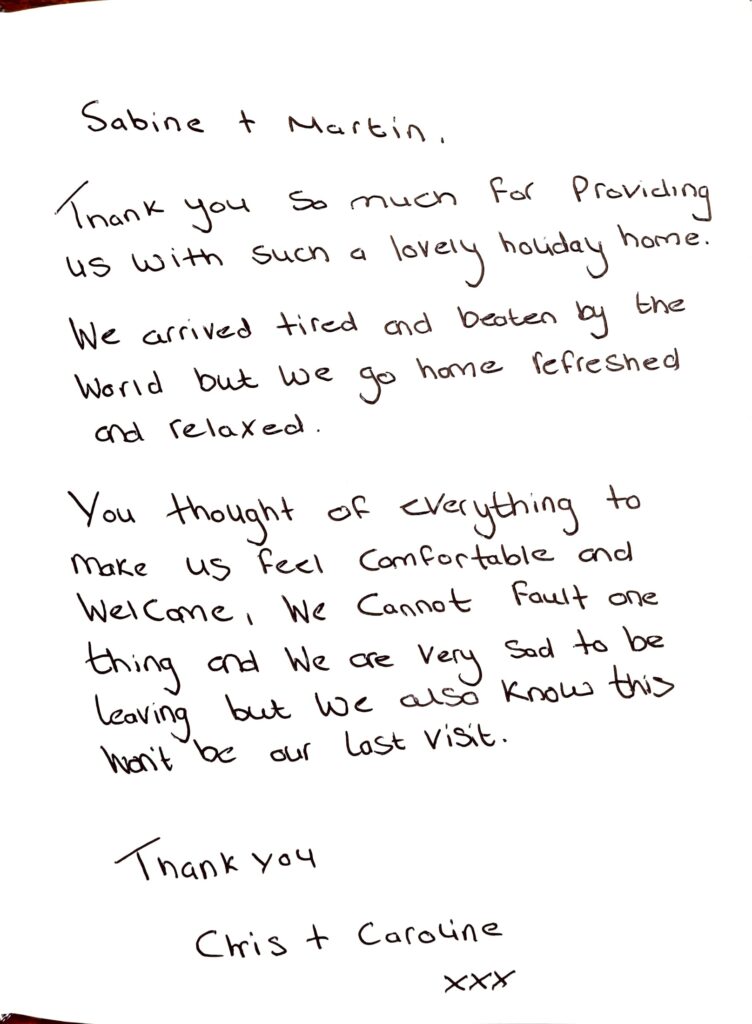 Sabine + Martin.
Thank you so much for Providing
us with such a lovely holiday home.
We arrived tired and beaten by the
World but we go home refreshed
and relaxed.
You thought of everything to
make us feel comfortable and
Welcome, We Cannot fault one
thing and We are very sad to be
leaving but We also know this
won't be our last visit.
Thank you
Chris + Caroline
xxx